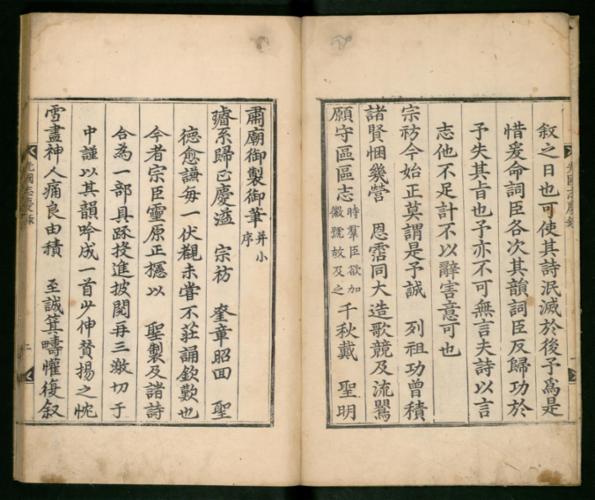 敘之日也可使其詩泯滅於後予爲是
惜爰命詞臣各次其韻詞臣反歸功於
予失其旨也予亦不可無言夫詩以言
志他不足計不以辭害意可也
宗祊今始正莫謂是予誠 列祖功曾積
諸賢悃幾營 恩霑同大造歌競及流鸎
願守區區志時羣臣欲加徽號故及之千秋戴 聖明
肅廟御製御筆并小序
璿系歸正慶溢 宗祊 奎章昭回 聖
德愈謙每一伏覩未嘗不莊誦欽歎也
今者宗臣靈原正攇以 聖製及諸詩
合為一部具踈投進披閱再三激切于
中謹以其韻吟成一首少伸賛揚之忱
雪盡神人痛良由積 至誠箕疇懽復叙
光國志慶錄
二